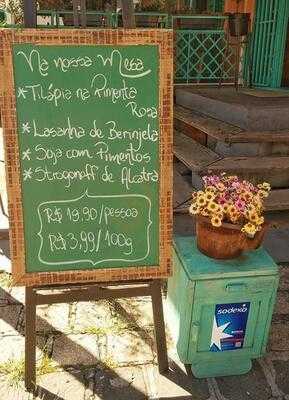 Na nossa Mesa
*Tilápia na Pimenta
Rosa
*Lasanha de Berinjela
*Soja com Pimentos
*Strogonoff de Alcatra
R$ 19,90/pessoa
R$ 3,99/100g
sodexo